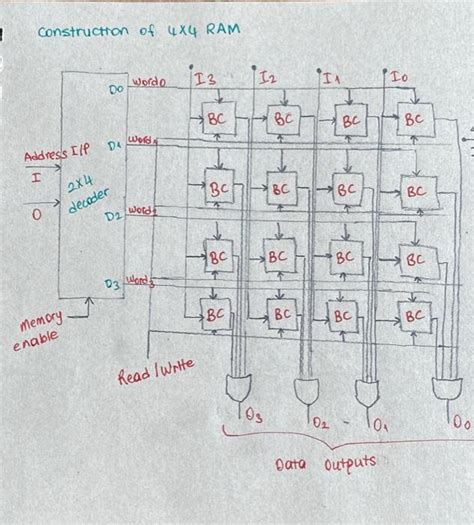 Construction of 4x4 RAM
I3 I2 I1 I0
D0 Word0
BC BC BC BC
D1 Word1
Address I/P
I
2x4
decoder
BC BC BC BC
O
D2 Word2
BC BC BC BC
D3 Word3
Memory
enable
BC BC BC BC
Read/Write
O3 O2 - O1 O0
Data Outputs